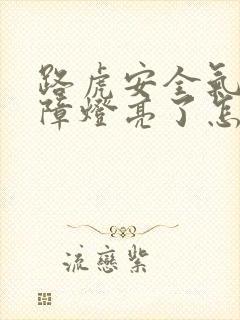 路虎安全氣
障燈亮了怎
流戀紫